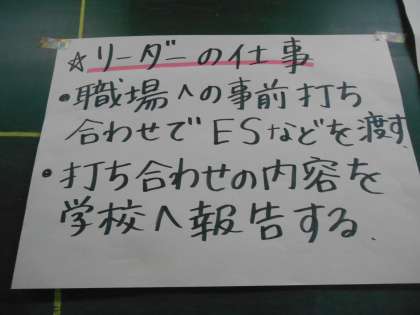 ☆リーダーの仕事
・職場への事前打ち
合わせでESなどを渡す.
・打ち合わせの内容を
学校へ報告する.